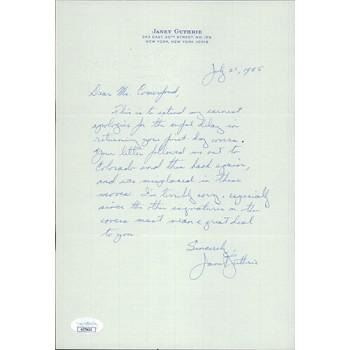 JANET GUTHRIE
NEW YORK, NEW YORK 10016
Dear Mr. Comerford,
This is to extend my earnest
apologies for the awful delay in
returning your first day covers.
Your letter followed me out to
Colorado and then back again,
and was misplaced in these
moves. I'm terribly sorry, especially
since the other signatures on the
covers must mean a great deal
to you.
Sincerely,
Janet Guthrie